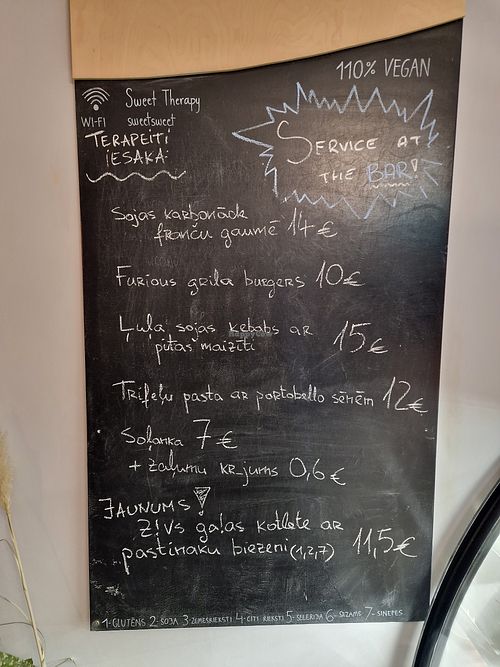 110% VEGAN
Sweet Therapy
WI-FI sweetsweet
TERAPEITI
IESAKA:
SERVICE AT
THE BAR!
Sojas karbonāde
franču gaumē 14€
Furious grila burgers 10€
Ļuļa sojas kebabs ar
pitas maizīti 15€
Trifeļu pasta ar portobello sēnēm 12€
Soļanka 7€
+ zaļumu kr-jums 0,6€
JAUNUMS!
Z!vs gaļas kotlete ar
pastinaku biezeni (1,2,7) 11,5€
1-GLUTĒNS 2-SOJA 3-ZEMESRIEKSTI 4-CITI RIEKSTI 5-SELERIJA 6-SEZAMS 7-SINEPES